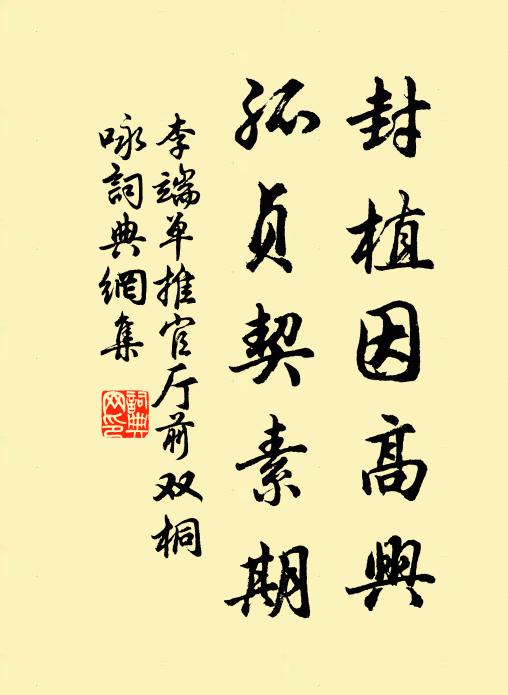 封植因高興
孤贞契素期
李端单推官厅前双桐
咏詞典網集
詞典网印